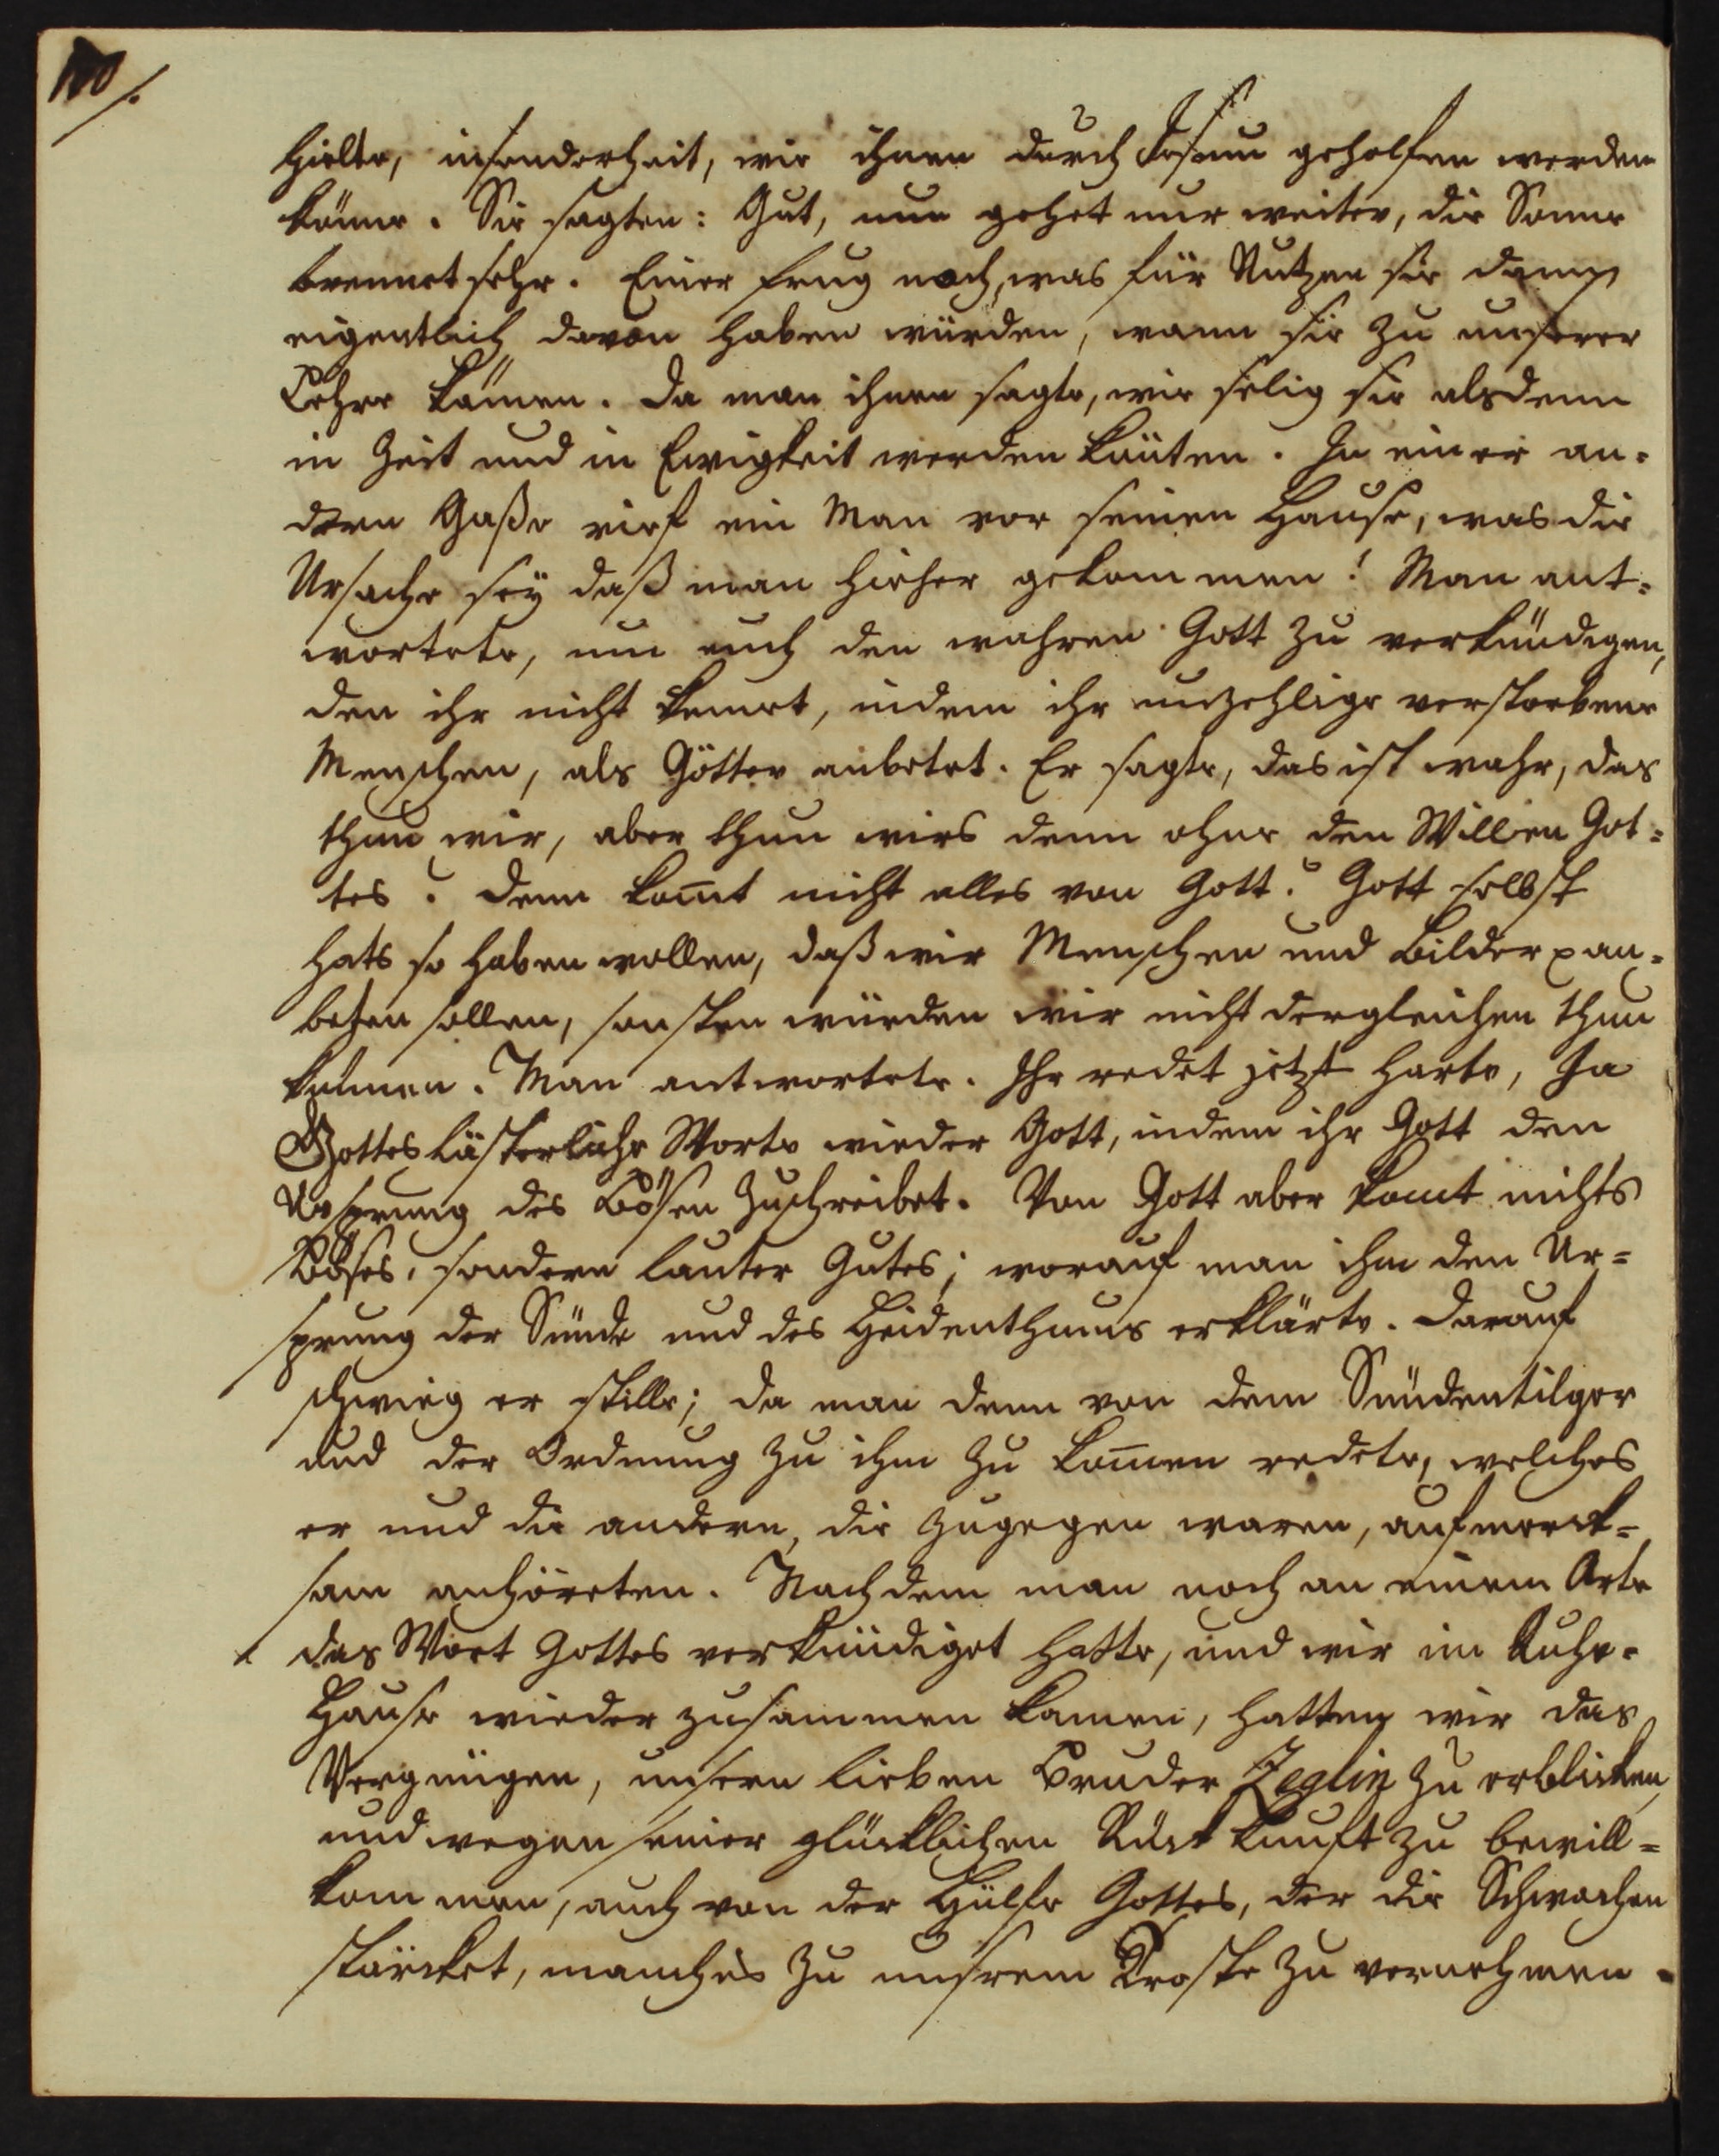 hielte, insonderheit, wie ihnen durch Jesum geholfen werden
könne. Sie sagten: Gut, nun gehet nur weiter, die Sonne
brennet sehr. Einer frug noch, was für Nutzen sie dann
eigentlich davon haben würden, wann sie zu unserer
Lehre kämen. Da man ihnen sagte, wie selig sie alsdenn
in Zeit und in Ewigkeit werden könten. In einer an-
dern Gaße rief ein Man vor seinen Hause, was die
Ursache sey daß man hieher gekommen? Man ant-
wortete, um euch den wahren Gott zu verkündigen,
den ihr nicht kennet, indem ihr unzehlige verstorbene
Menschen, als Götter anbetet. Er sagte, das ist wahr, das
thun wir, aber thun wirs denn ohne den Willen Got-
tes? denn kom̄t nicht alles von Gott? Gott selbst
hats so haben wollen, daß wir Menschen und Bilder an-
beten sollen, sonsten würden wir nicht dergleichen thun
können. Man antwortete. Ihr redet jetzt harte, Ja
Gotteslästerliche Worte wieder Gott, indem ihr Gott den
Ursprung des Bösen zuschreibet. Von Gott aber komt nichts
Böses, sondern lauter Gutes; worauf man ihm den Ur-
sprung der Sünde und des Heidenthums erklärte. Darauf
schwieg er stille; da man denn von dem Sündentilger
und der Ordnung zu ihm zu kom̄en redete, welches
er und die andern, die zugegen waren, aufmerck-
sam anhöreten. Nachdem man noch an einem Orte
das Wort Gottes verkündiget hatte, und wir im Ruhe-
Hause wieder zusammen kamen, hatten wir das
Vergnügen, unsern lieben Bruder Zeglin zu erblicken,
und wegen seiner glücklichen Rückkunft zu bewill-
kommen, auch von der Hülfe Gottes, der die Schwachen
stärcket, manches zu unsrem Troste zu vernehmen.